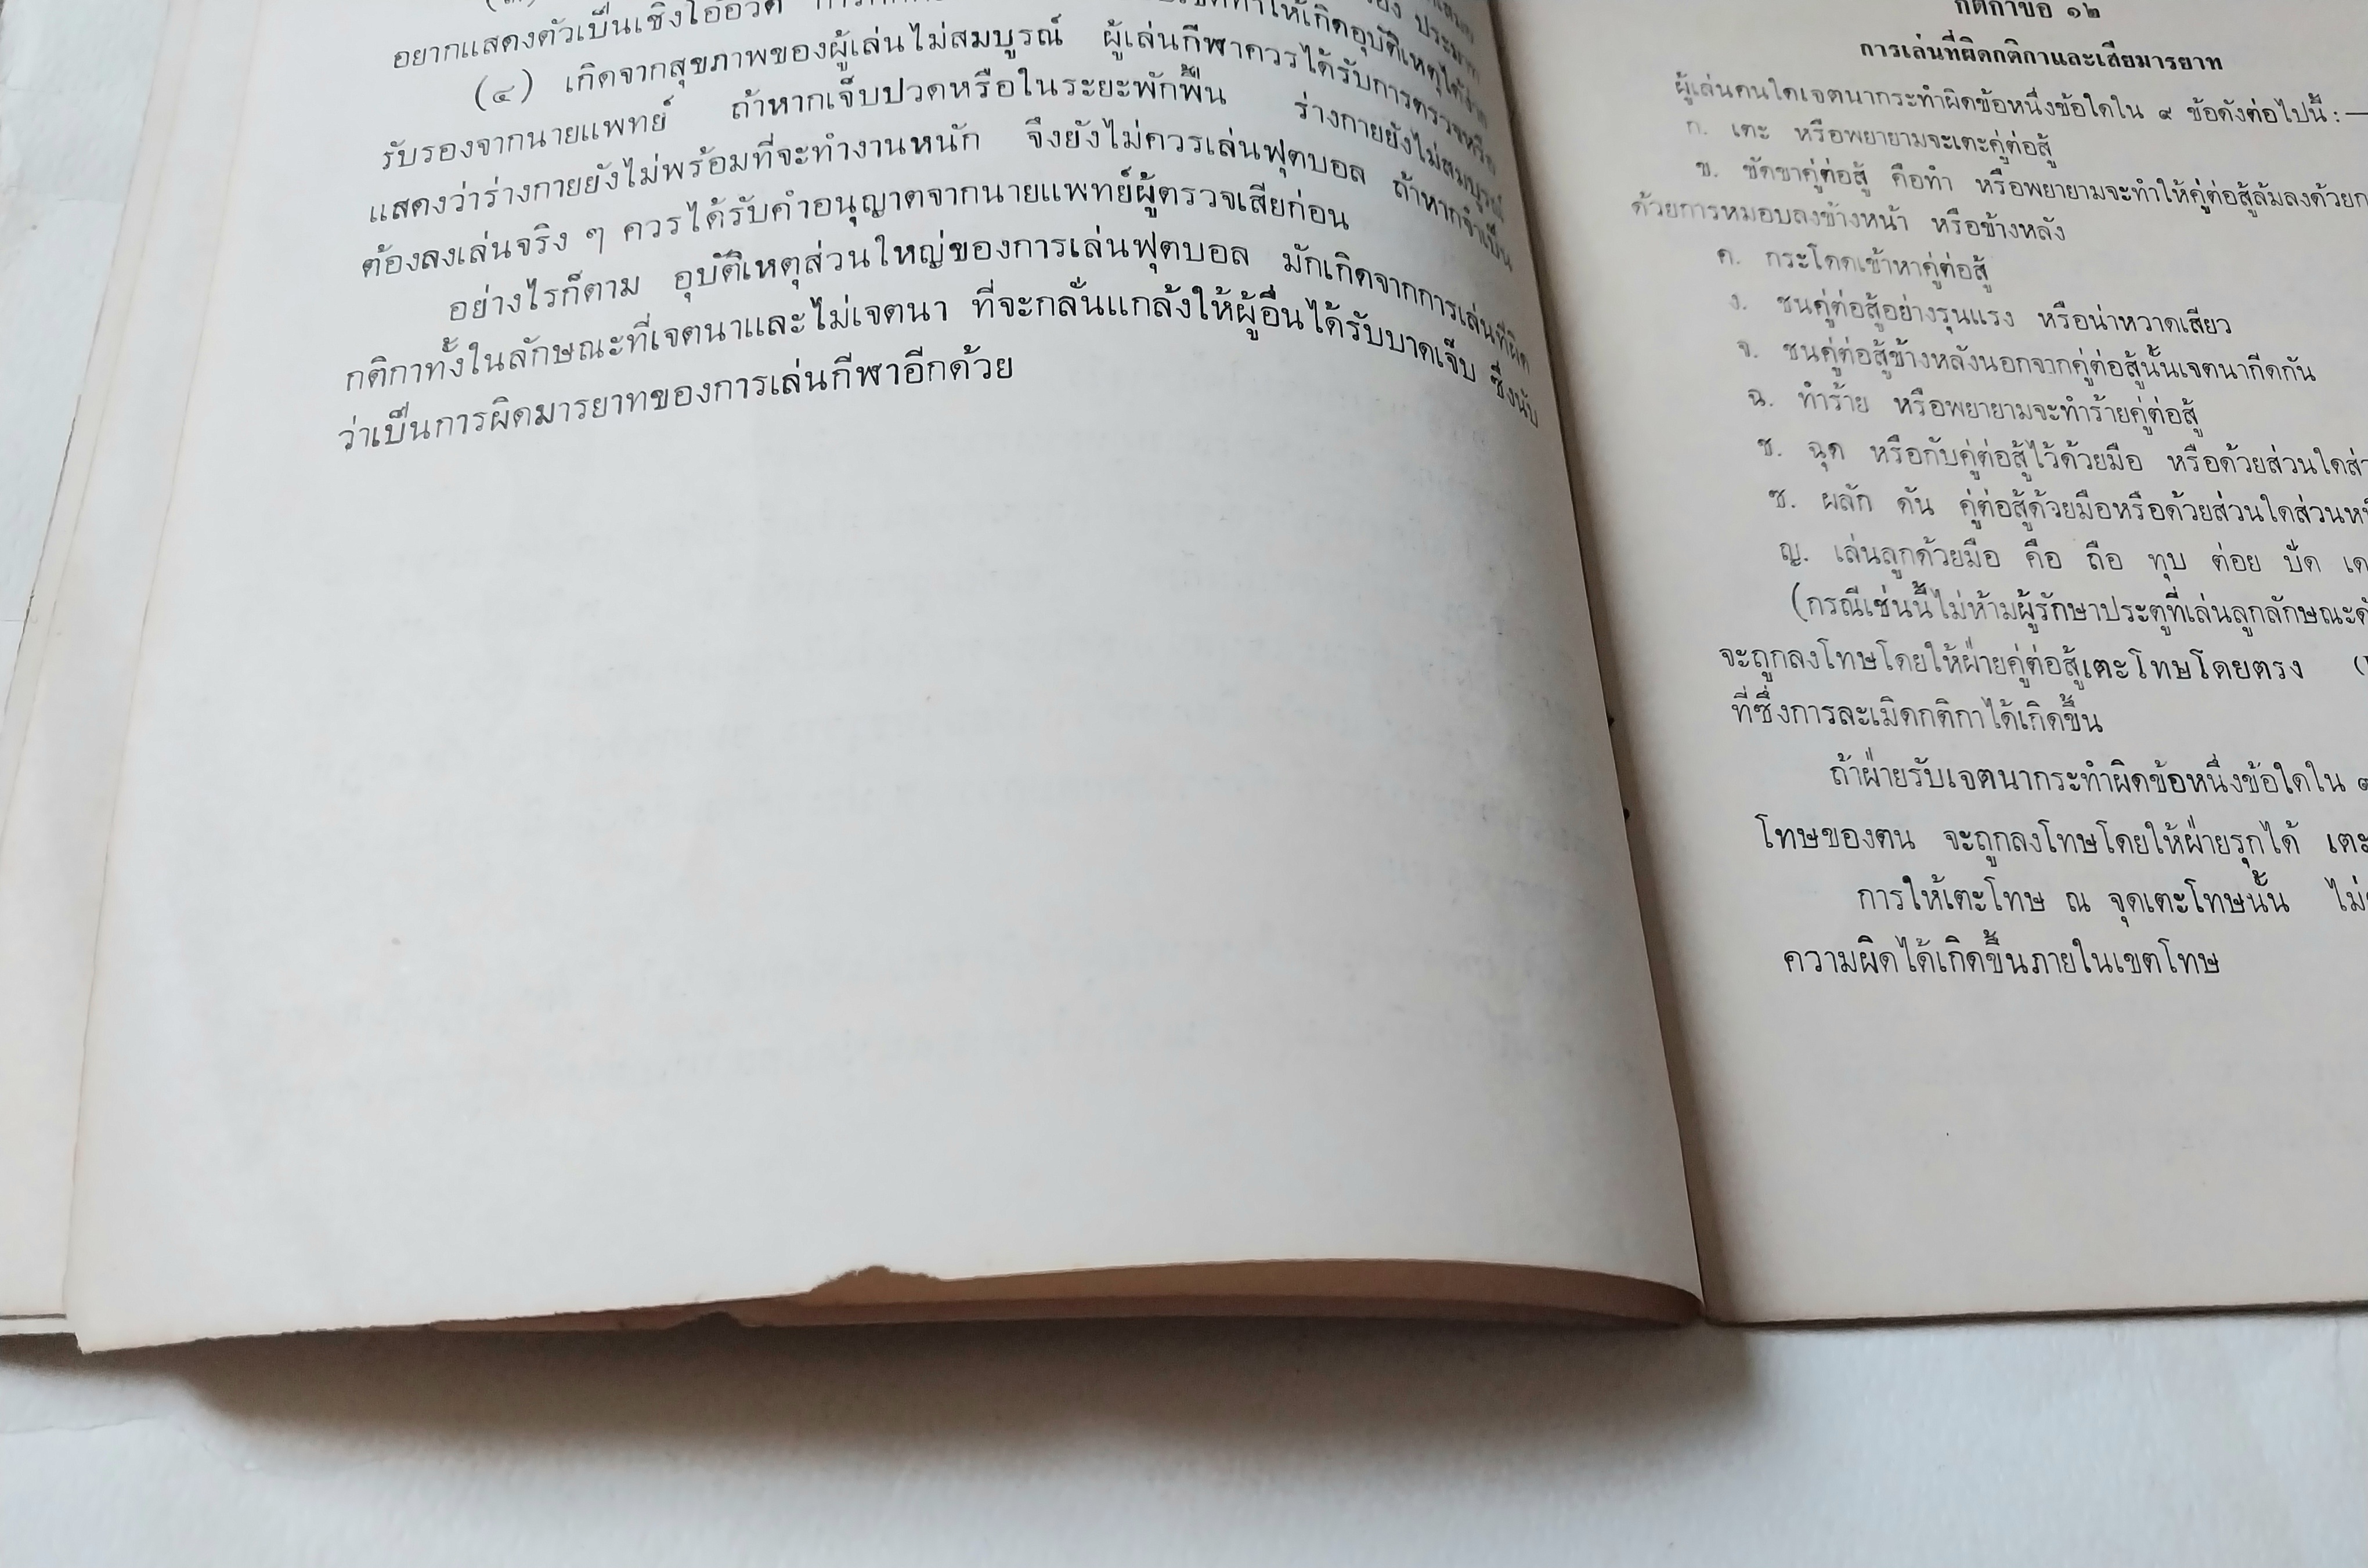 อยากแสดงตัวเป็นเชิงโอ้อวด
(๔) เกิดจากสุขภาพของผู้เล่นไม่สมบูรณ์ ผู้เล่นกีฬาควรได้รับการตรวจหรือ
รับรองจากนายแพทย์ ถ้าหากเจ็บปวดหรือในระยะพักฟื้น ร่างกายยังไม่สมบูรณ์
แสดงว่าร่างกายยังไม่พร้อมที่จะทำงานหนัก จึงยังไม่ควรเล่นฟุตบอล ถ้าหากจำเป็น
ต้องลงเล่นจริง ๆ ควรได้รับคำอนุญาตจากนายแพทย์ผู้ตรวจเสียก่อน
อย่างไรก็ตาม อุบัติเหตุส่วนใหญ่ของการเล่นฟุตบอล มักเกิดจากการเล่นที่ผิด
กติกาทั้งในลักษณะที่เจตนาและไม่เจตนา ที่จะกลั่นแกล้งให้ผู้อื่นได้รับบาดเจ็บ ซึ่งนับ
ว่าเป็นการผิดมารยาทของการเล่นกีฬาอีกด้วย
กติกาข้อ ๑๒
การเล่นที่ผิดกติกาและเสียมารยาท
ผู้เล่นคนใดเจตนากระทำผิดข้อหนึ่งข้อใดใน ๙ ข้อดังต่อไปนี้ :—
ก. เตะ หรือพยายามจะเตะคู่ต่อสู้
ข. ขัดขาคู่ต่อสู้ คือทำ หรือพยายามจะทำให้คู่ต่อสู้ล้มลงด้วย
ด้วยการหมอบลงข้างหน้า หรือข้างหลัง
ค. กระโดดเข้าหาคู่ต่อสู้
ง. ชนคู่ต่อสู้อย่างรุนแรง หรือน่าหวาดเสียว
จ. ชนคู่ต่อสู้ข้างหลังนอกจากคู่ต่อสู้นั้นเจตนากีดกัน
ฉ. ทำร้าย หรือพยายามจะทำร้ายคู่ต่อสู้
ช. ฉุด หรือกับคู่ต่อสู้ไว้ด้วยมือ หรือด้วยส่วนใด
ซ. ผลัก ดัน คู่ต่อสู้ด้วยมือหรือด้วยส่วนใดส่วน
ญ. เล่นลูกด้วยมือ คือ ถือ ทุบ ต่อย ปัด
(กรณีเช่นนี้ไม่ห้ามผู้รักษาประตูที่เล่นลูกลักษณะ
จะถูกลงโทษโดยให้ฝ่ายคู่ต่อสู้เตะโทษโดยตรง
ที่ซึ่งการละเมิดกติกาได้เกิดขึ้น
ถ้าฝ่ายรับเจตนากระทำผิดข้อหนึ่งข้อใดใน
โทษของตน จะถูกลงโทษโดยให้ฝ่ายรุกได้ เตะ
การให้เตะโทษ ณ จุดเตะโทษนั้น
ความผิดได้เกิดขึ้นภายในเขตโทษ